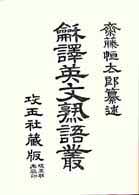 齋藤恒太郎纂述
龢譯英文熟語叢
攻玉社藏版